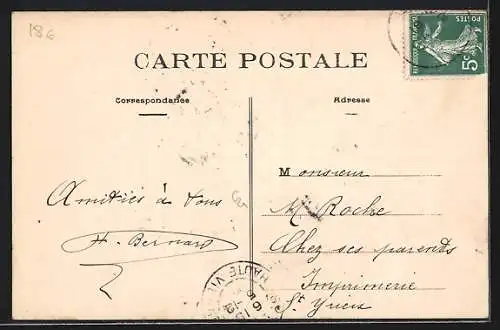 186
CARTE POSTALE
POSTES
5c
Correspondance
Adresse
Amitiés à tous
H. Bernard
Monsieur
M. Roche
Chez ses parents
Imprimerie
St Yrieix
HAUTE VI